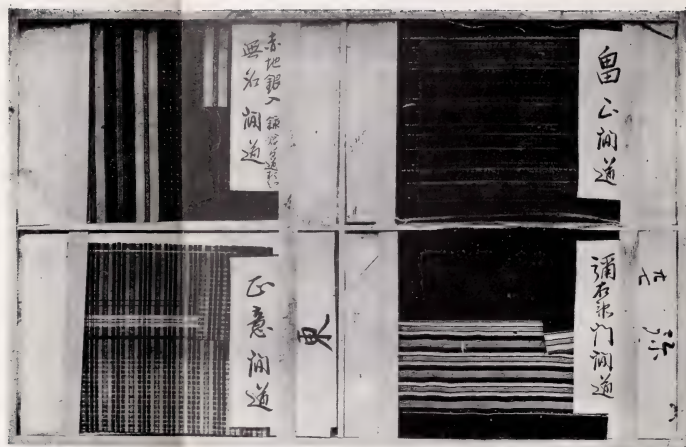 畠山間道
赤地銀入
無名間道
彌右衛門間道
正意間道